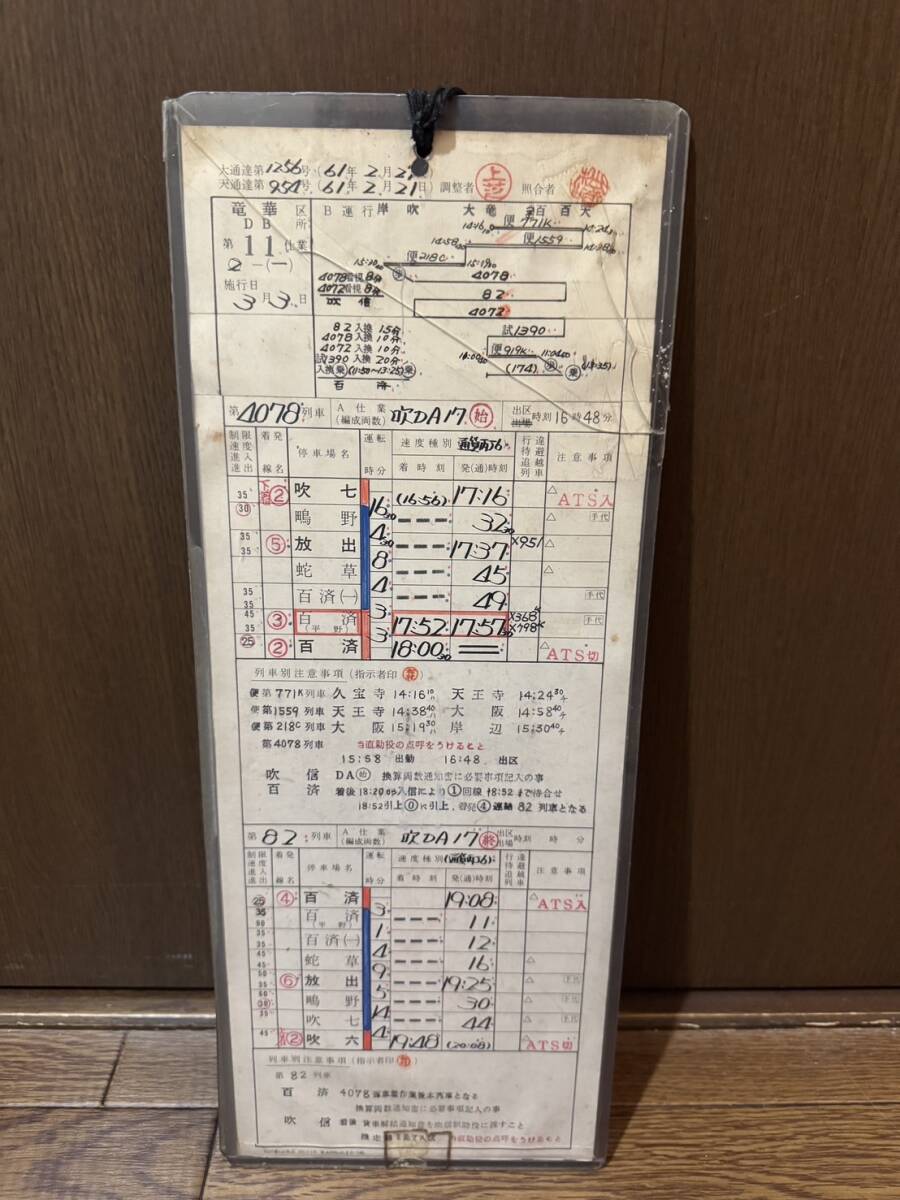 大通達第1256号(61年2月21日)
天通達第954号(61年2月21日) 調整者 照合者
竜華区 B運行 岸 吹 大 竜 百 百 天
DB所 14:16 便771K 14:24
第11仕業 14:38 便1559 14:58
2-(一) 15:30 便218C 15:19
4078着視8分 4078
施行日 4072着視8分 82
3月3日 吹信 4072
82入換15分 試1390
4078入換10分
4072入換10分 便919K
試1390入換20分 (174) 乗
入換乗(11:50~13:25)乗
百済
第4078列車 A仕業 (編成両数) 吹DA17 始 出区 時刻16時48分
制限速度 進入 進出 着発線名 停車場名 運転時分 速度種別 通貨丙J6 着時刻 発(通)時刻 行違 待避 追越 列車 注意事項
35 30 ② 吹七 (16:56) 17:16 ATS入
16 鴫野 32 手代
35 35 ⑤ 放出 4 17:37 ×951
8 蛇草 45
35 35 百済(一) 4 49 手代
45 35 ③ 百済(平野) 3 17:52 17:57 ×368K ×798K 手代
25 ② 百済 3 18:00 ATS切
列車別注意事項 (指示者印)
便第771K列車 久宝寺 14:16 天王寺 14:24
便第1559列車 天王寺 14:38 大阪 14:58
便第218C列車 大阪 15:19 岸辺 15:30
第4078列車 当直助役の点呼をうけること
15:58 出勤 16:48 出区
吹信 DA始 換算両数通知書に必要事項記入の事
百済 着後18:20から入信により①回線18:52まで待合せ
18:52引上⓪に引上、着発④連結 82列車となる
第82列車 A仕業 (編成両数) 吹DA17 終 出区 出場 時刻 時 分
制限速度 進入 進出 着発線名 停車場名 運転時分 速度種別 (通貨丙J6) 着時刻 発(通)時刻 行違 待避 追越 列車 注意事項
25 ④ 百済 19:08 ATS入
35 百済(平野) 3 11
35 35 百済(一) 1 12
45 45 蛇草 4 16
50 35 ⑥ 放出 9 19:25 手代
鴫野 5 30 手代
吹七 14 44 手代
45 ② 吹六 4 19:48 (20:08) ATS切
列車別注意事項 (指示者印)
第82列車
百済 4078
換算両数通知書に必要事項記入の事
吹信 着後 貨車解結通知書を
当直助役の点呼をうけること